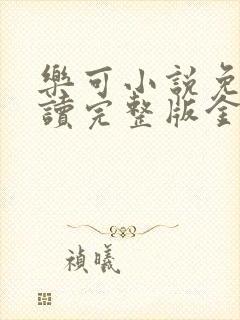 樂可小說免
讀完整版全
禎曦